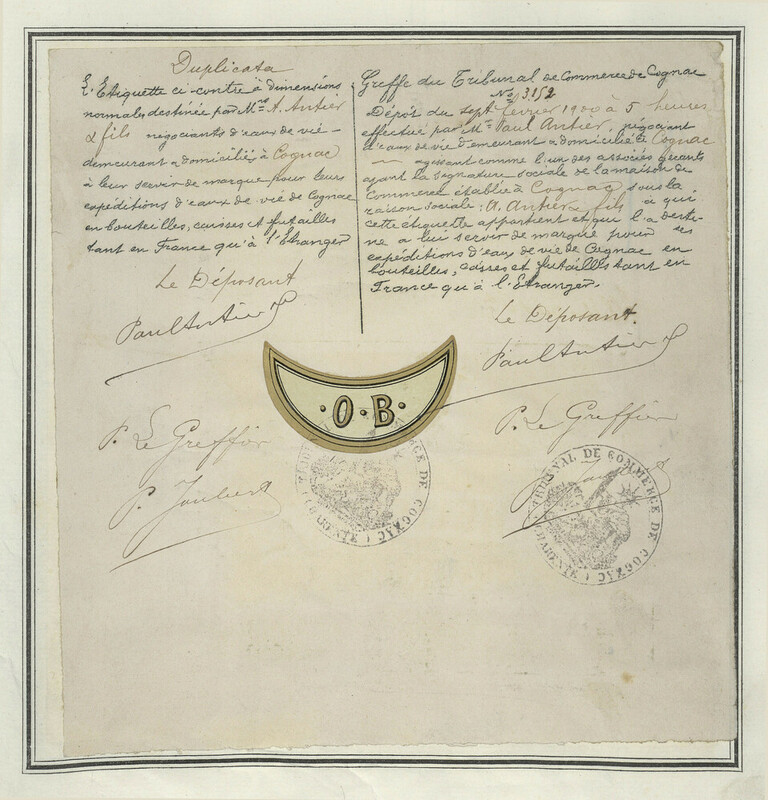 Duplicata
L'Etiquette ci-contre à dimensions
normales destinée par Mrs A. Antier
& fils négociants d'eaux de vie -
demeurant & domicilié à Cognac
à leur servir de marque pour leurs
expéditions d'eaux de vie de Cognac
en bouteilles, caisses et futailles
tant en France qu'à l'Etranger
Le Déposant
Paul Antier
P. Le Greffier
P. Joubert
Greffe du Tribunal de Commerce de Cognac
No 3152
Dépôt du sept février 1900 à 5 heures
effectué par Mr Paul Antier, négociant
d'eaux de vie demeurant & domicilié à Cognac
— agissant comme l'un des associés gérants
ayant la signature sociale de la maison de
Commerce établie à Cognac sous la
raison sociale: A. Antier & fils à qui
cette étiquette appartient et qui l'a desti-
né à lui servir de marque pour ses
expéditions d'eaux de vie de Cognac en
bouteilles, caisses et futailles tant en
France qu'à l'Etranger.
Le Déposant.
Paul Antier
P. Le Greffier
P. Joubert
· O · B ·
COMMERCE DE COGNAC
(CHARENTE)
TRIBUNAL DE COMMERCE DE COGNAC
(CHARENTE)